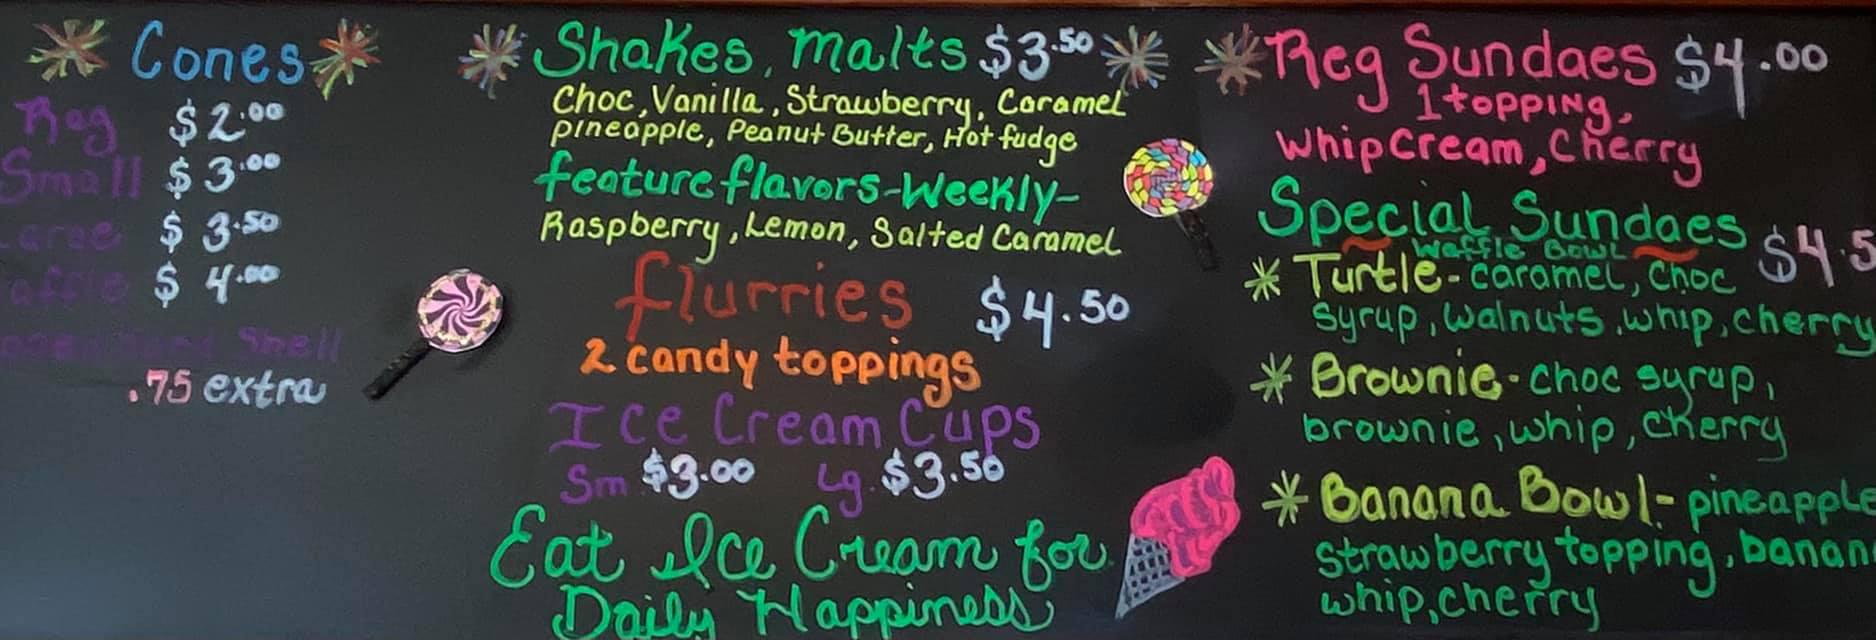 Cones
Reg $2.00
Small $3.00
Large $3.50
affle $4.00
Shell
.75 extra
Shakes, Malts $3.50
Choc, Vanilla, Strawberry, Caramel
pineapple, Peanut Butter, Hot fudge
feature flavors-Weekly-
Raspberry, Lemon, Salted Caramel
flurries $4.50
2 candy toppings
Ice Cream Cups
Sm. $3.00 Lg. $3.50
Eat Ice Cream for
Daily Happiness
Reg Sundaes $4.00
1 topping,
whip cream, cherry
Special Sundaes
Waffle Bowl $4.5
* Turtle - caramel, choc
syrup, walnuts, whip, cherry
* Brownie - choc syrup,
brownie, whip, cherry
* Banana Bowl - pineapple
strawberry topping, banan
whip, cherry